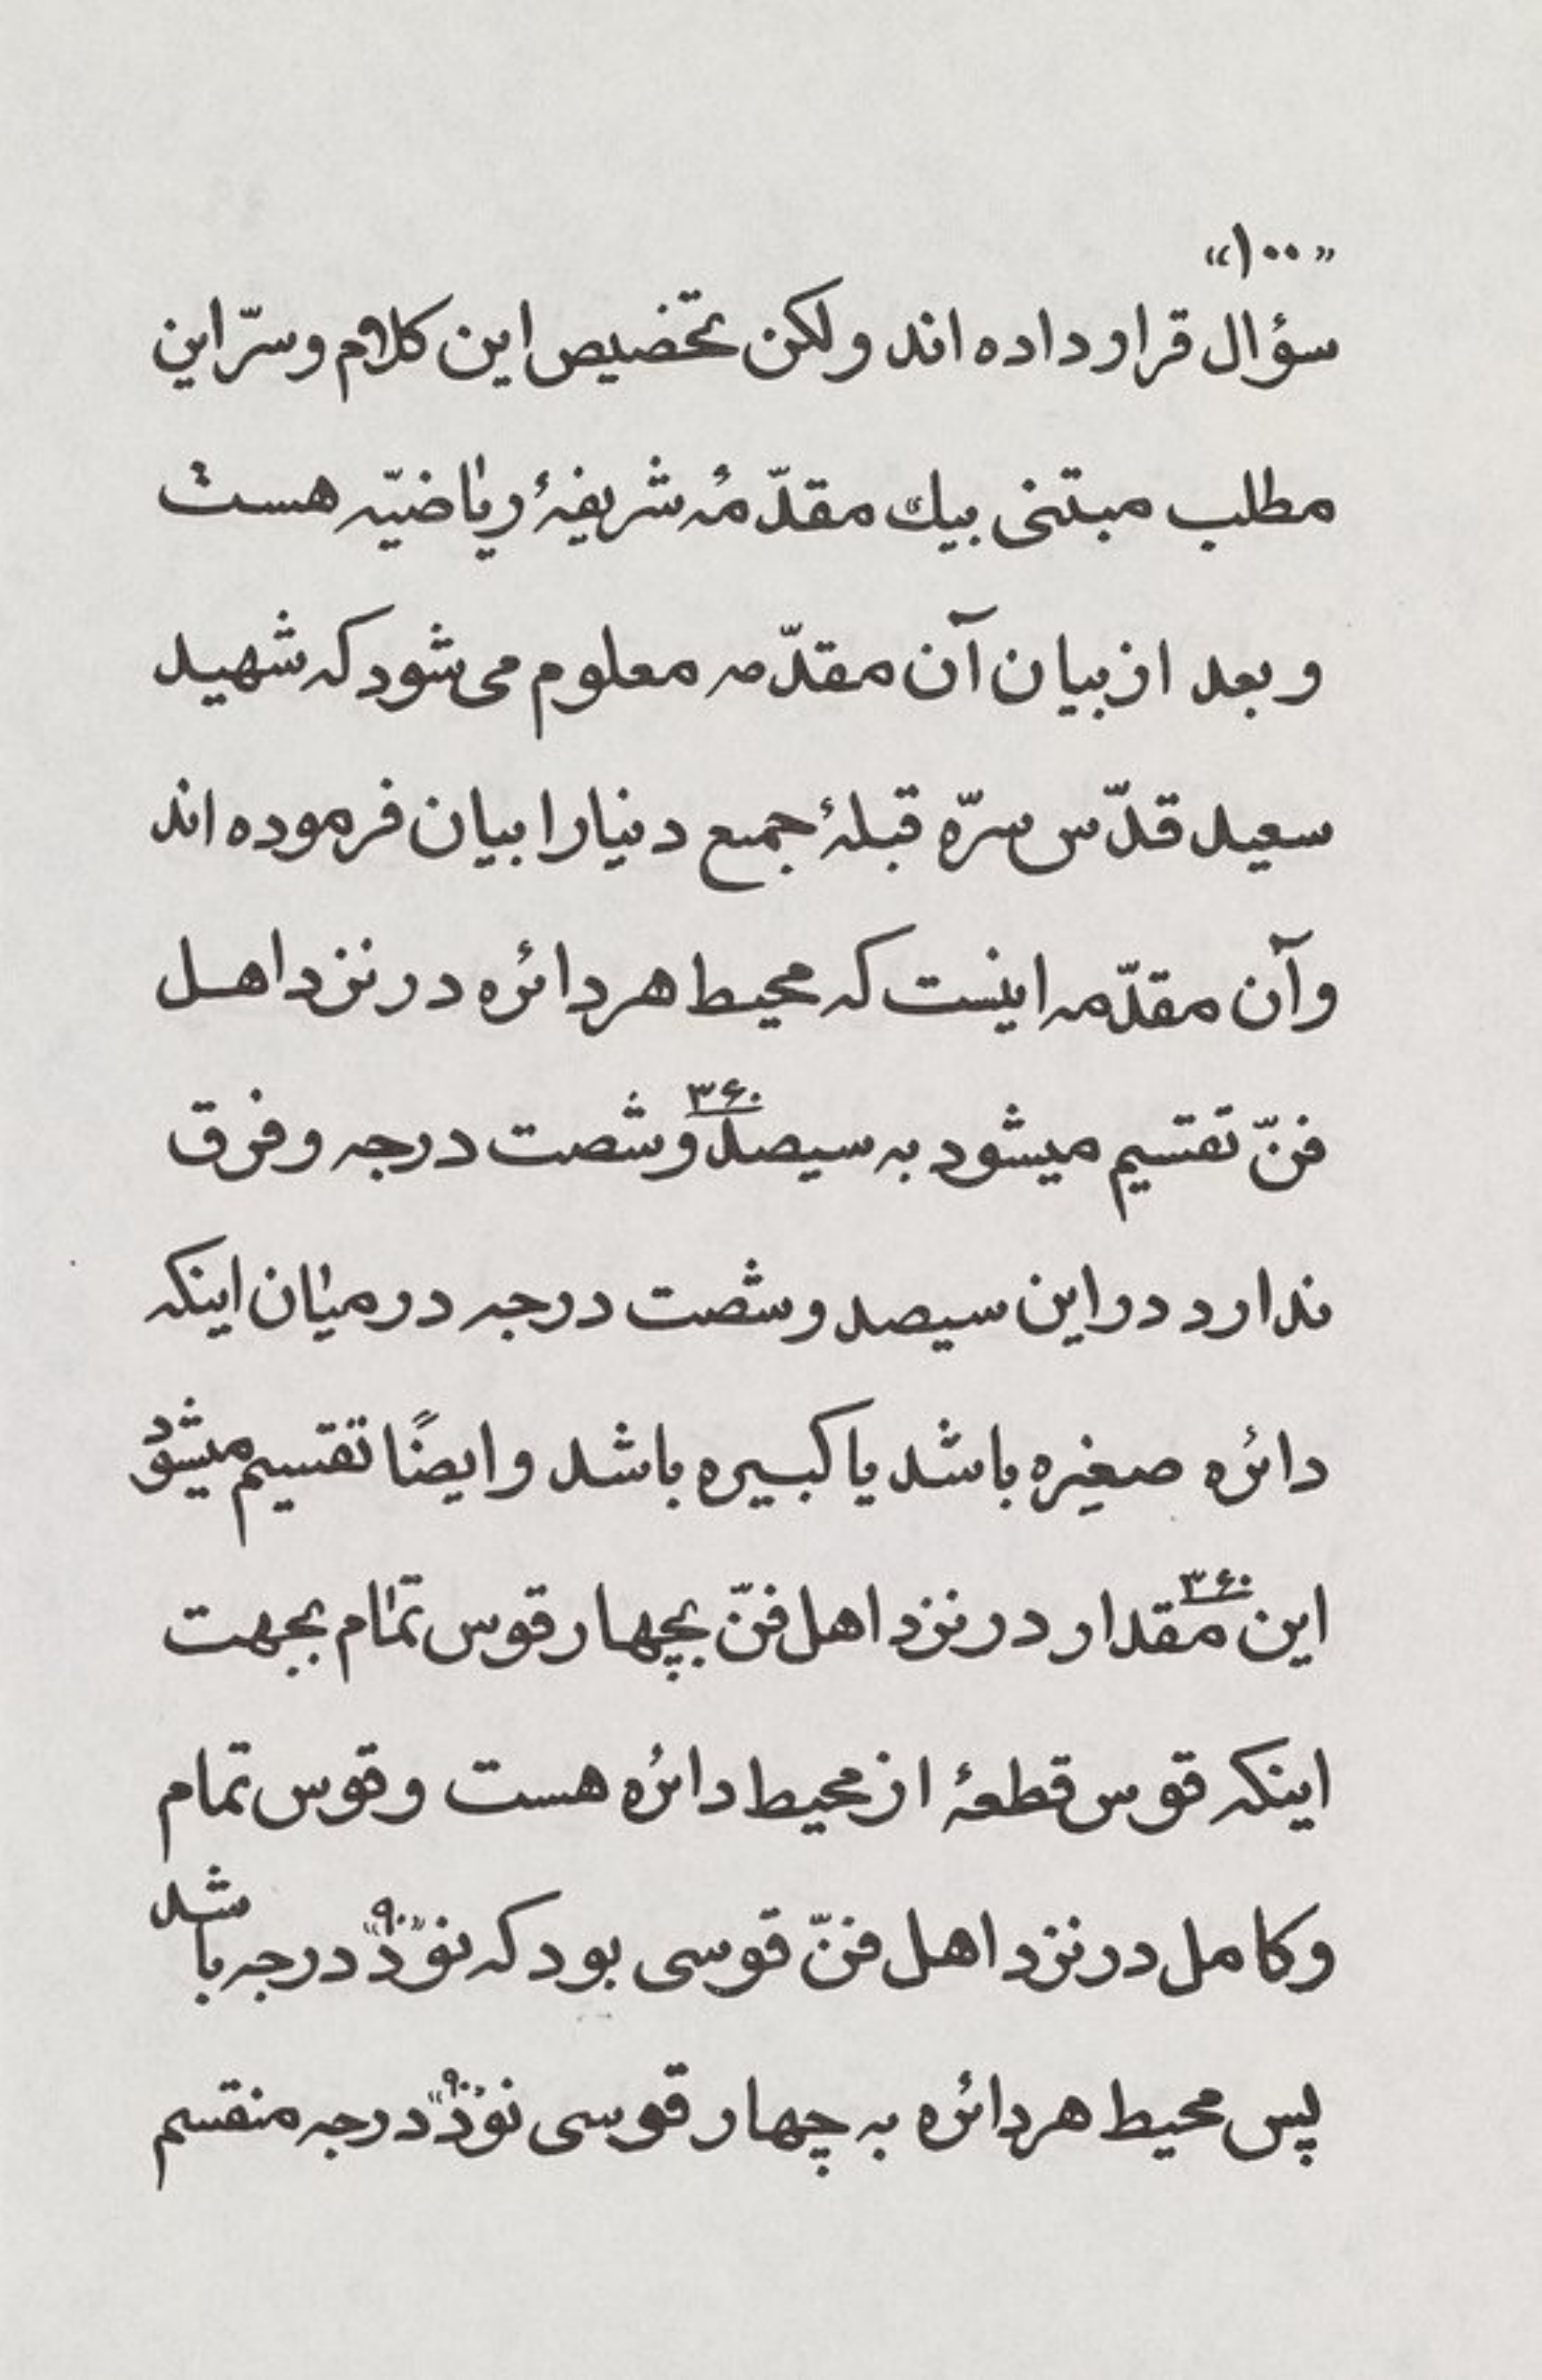 «۱۰۰»
سؤال قرار داده اند ولکن تخصیص این کلام و سرّ این
مطلب مبتنی بیك مقدّمهٔ شریفهٔ ریاضیّه هست
و بعد از بیان آن مقدّمه معلوم می شود که شهید
سعید قدّس سرّه قبلهٔ جمیع دنیا را بیان فرموده اند
و آن مقدّمه اینست که محیط هر دائره در نزد اهل
فنّ تقسیم میشود به سیصد و شصت ۳۶۰ درجه و فرق
ندارد در این سیصد و شصت درجه در میان اینکه
دائره صغیره باشد یا کبیره باشد و ایضًا تقسیم میشود
این مقدار ۳۶۰ در نزد اهل فنّ بچهار قوس تمام بجهت
اینکه قوس قطعهٔ از محیط دائره هست و قوس تمام
و کامل در نزد اهل فنّ قوسی بود که نود «۹۰» درجه باشد
پس محیط هر دائره به چهار قوسی نود «۹۰» درجه منقسم